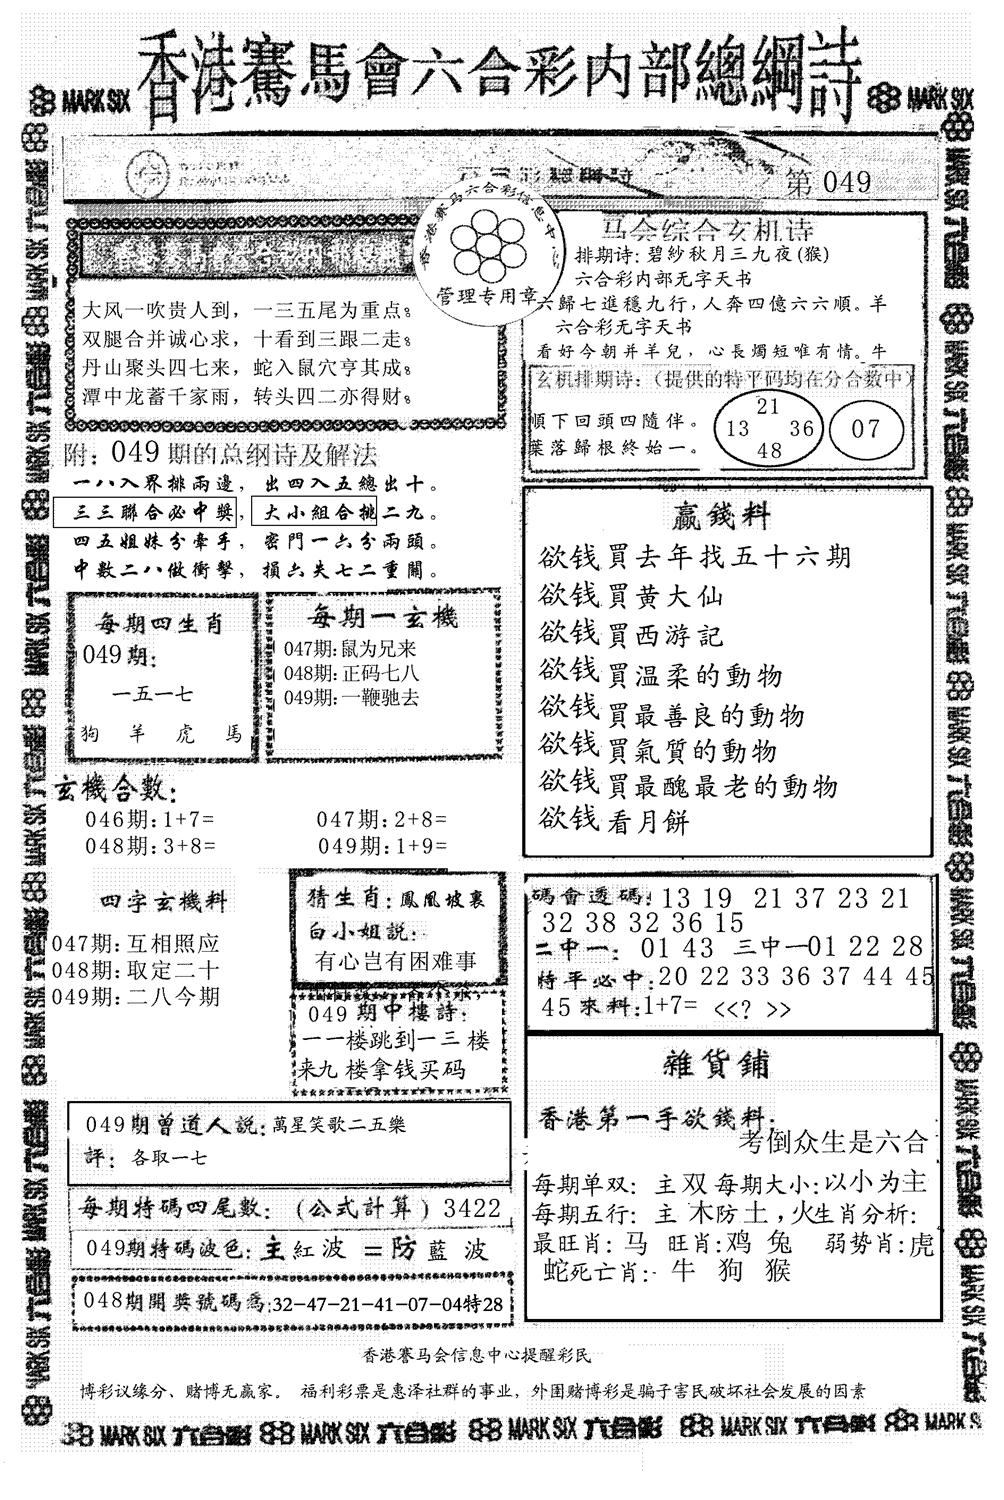 香港騫馬會六合彩内部總綱詩
MARK SIX
MARK SIX
第 049
香港赛马六合彩信息中心
管理专用章
大风一吹贵人到，一三五尾为重点。
双腿合并诚心求，十看到三跟二走。
丹山聚头四七来，蛇入鼠穴亨其成。
潭中龙蓄千家雨，转头四二亦得财。
马会综合玄机诗
排期诗: 碧紗秋月三九夜(猴)
六合彩内部无字天书
六歸七進穩九行，人奔四億六六順。羊
六合彩无字天书
看好今朝并羊兒，心長燭短唯有情。牛
玄机排期诗:（提供的特平码均在分合数中）
順下回頭四隨伴。
葉落歸根終始一。
21
13 36
48
07
附: 049 期的总纲诗及解法
一八入界排兩邊，出四入五總出十。
三三聯合必中獎，大小組合挑二九。
四五姐妹分牽手，密門一六分兩頭。
中數二八做衝擊，損六失七二重開。
每期四生肖
049期:
一五一七
狗 羊 虎 馬
每期一玄機
047期:鼠为兄来
048期:正码七八
049期:一鞭驰去
赢錢料
欲钱買去年找五十六期
欲钱買黄大仙
欲钱買西游記
欲钱買温柔的動物
欲钱買最善良的動物
欲钱買氣質的動物
欲钱買最醜最老的動物
欲钱看月餅
玄機合數:
046期:1+7= 047期:2+8=
048期:3+8= 049期:1+9=
四字玄機料
047期:互相照应
048期:取定二十
049期:二八今期
猜生肖: 鳳凰坡裏
白小姐説:
有心岂有困难事
049 期中樓詩:
一一楼跳到一三 楼
来九 楼拿钱买码
碼會透碼: 13 19 21 37 23 21
32 38 32 36 15
二中一: 01 43 三中一01 22 28
特平必中:20 22 33 36 37 44 45
45來料:1+7= <<? >>
049期曾道人説:萬星笑歌二五樂
評: 各取一七
每期特碼四尾數: (公式計算) 3422
049期特碼波色:主紅波 =防藍 波
048期開獎號碼爲:32-47-21-41-07-04特28
雜貨鋪
香港第一手欲錢料:
考倒众生是六合
每期单双: 主双 每期大小:以小为主
每期五行: 主 木防土,火生肖分析:
最旺肖: 马 旺肖:鸡 兔 弱势肖:虎
蛇死亡肖: 牛 狗 猴
香港賽马会信息中心提醒彩民
博彩议缘分、赌博无赢家。 福利彩票是惠泽社群的事业，外围赌博彩是骗子害民破坏社会发展的因素
MARK SIX 六合彩 MARK SIX 六合彩 MARK SIX 六合彩 MARK SIX 六合彩 MARK SIX